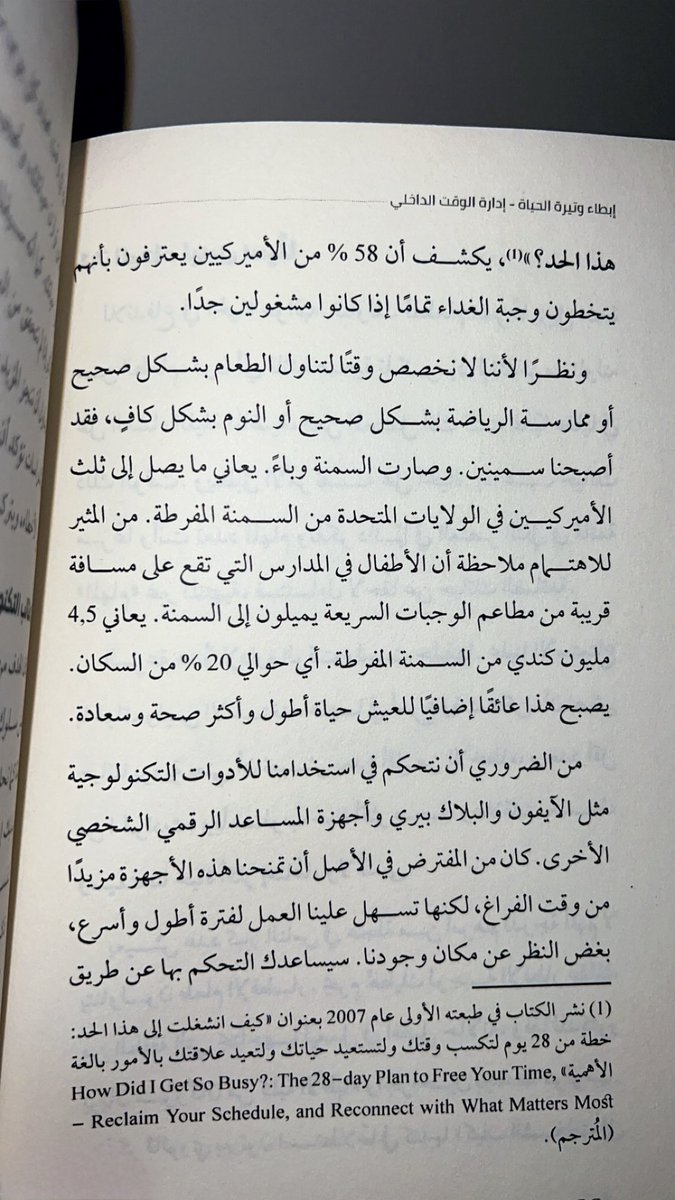 إبطاء وتيرة الحياة - إدارة الوقت الداخلي
هذا الحد؟»(1)، يكشف أن 58 % من الأميركيين يعترفون بأنهم
يتخطون وجبة الغداء تمامًا إذا كانوا مشغولين جدًا.
ونظرًا لأننا لا نخصص وقتًا لتناول الطعام بشكل صحيح
أو ممارسة الرياضة بشكل صحيح أو النوم بشكل كافٍ، فقد
أصبحنا سمينين. وصارت السمنة وباءً. يعاني ما يصل إلى ثلث
الأميركيين في الولايات المتحدة من السمنة المفرطة. من المثير
للاهتمام ملاحظة أن الأطفال في المدارس التي تقع على مسافة
قريبة من مطاعم الوجبات السريعة يميلون إلى السمنة. يعاني 4,5
مليون كندي من السمنة المفرطة. أي حوالي 20 % من السكان.
يصبح هذا عائقًا إضافيًا للعيش حياة أطول وأكثر صحة وسعادة.
من الضروري أن نتحكم في استخدامنا للأدوات التكنولوجية
مثل الآيفون والبلاك بيري وأجهزة المساعد الرقمي الشخصي
الأخرى. كان من المفترض في الأصل أن تمنحنا هذه الأجهزة مزيدًا
من وقت الفراغ، لكنها تسهل علينا العمل لفترة أطول وأسرع،
بغض النظر عن مكان وجودنا. سيساعدك التحكم بها عن طريق
(1) نشر الكتاب في طبعته الأولى عام 2007 بعنوان «كيف انشغلت إلى هذا الحد:
خطة من 28 يوم لتكسب وقتك ولتستعيد حياتك ولتعيد علاقتك بالأمور بالغة
الأهمية» How Did I Get So Busy?: The 28-day Plan to Free Your Time,
Reclaim Your Schedule, and Reconnect with What Matters Most –
(المُترجم).